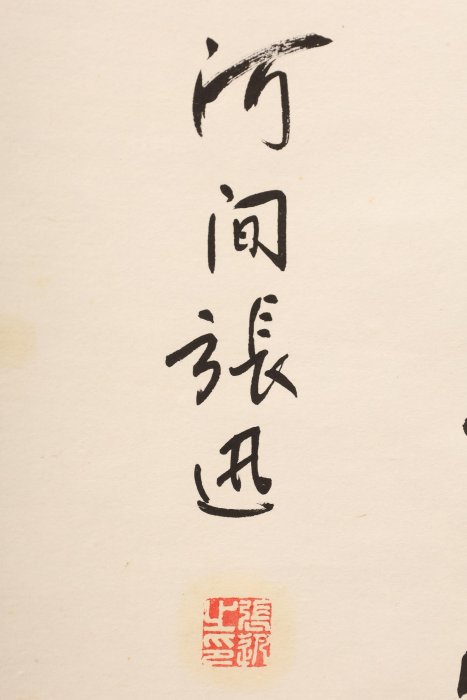 河间張迅
張迅之印